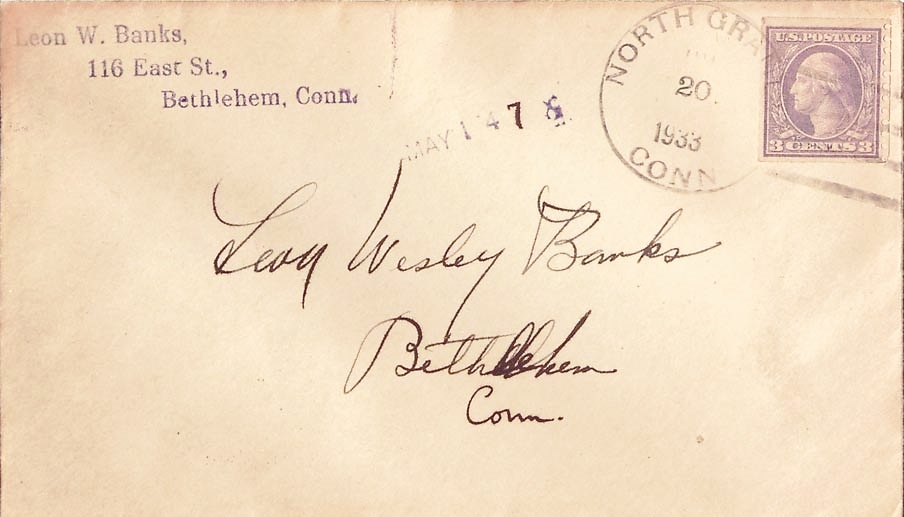 Leon W. Banks,
116 East St.,
Bethlehem, Conn.
MAY 14 7
NORTH GRA
20
1933
CONN
U.S. POSTAGE
3 CENTS 3
Leon Wesley Banks
Bethlehem
Conn.